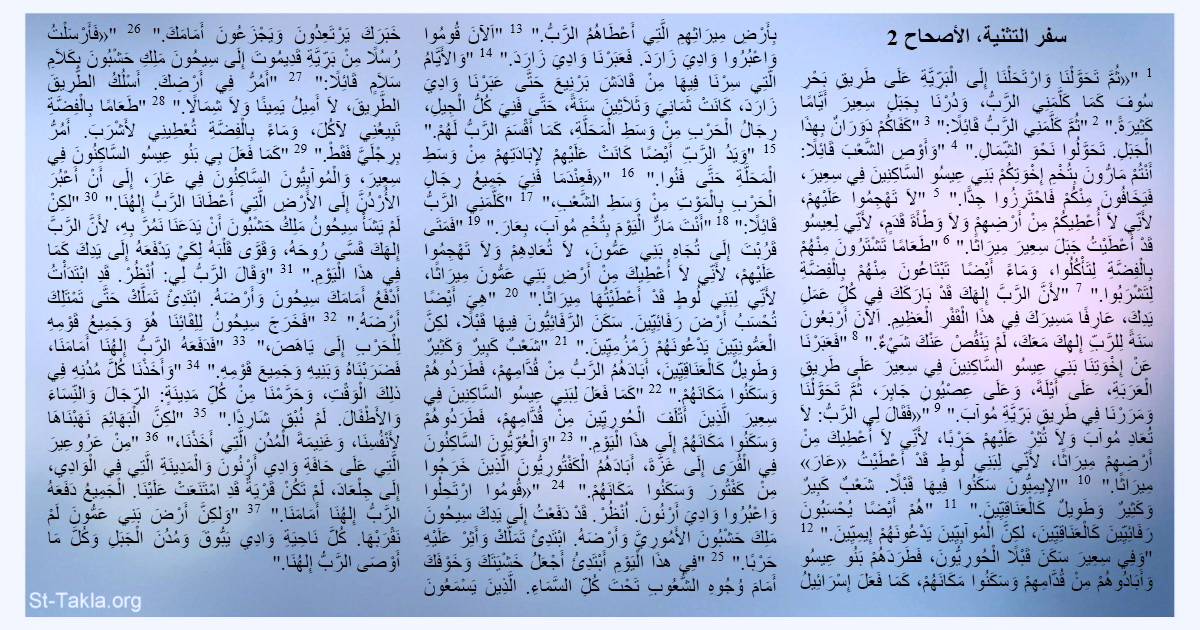 سفر التثنية، الأصحاح 2
1 "«ثُمَّ تَحَوَّلْنَا وَارْتَحَلْنَا إِلَى الْبَرِّيَّةِ عَلَى طَرِيقِ بَحْرِ
سُوفَ كَمَا كَلَّمَنِي الرَّبُّ، وَدُرْنَا بِجَبَلِ سِعِيرَ أَيَّامًا
كَثِيرَةً." 2 "ثُمَّ كَلَّمَنِي الرَّبُّ قَائِلًا:" 3 "كَفَاكُمْ دَوَرَانٌ بِهذَا
الْجَبَلِ. تَحَوَّلُوا نَحْوَ الشِّمَالِ." 4 "وَأَوْصِ الشَّعْبَ قَائِلًا:
أَنْتُمْ مَارُّونَ بِتُخْمِ إِخْوَتِكُمْ بَنِي عِيسُو السَّاكِنِينَ فِي سِعِيرَ،
فَيَخَافُونَ مِنْكُمْ فَاحْتَرِزُوا جِدًّا." 5 "لاَ تَهْجِمُوا عَلَيْهِمْ،
لأَنِّي لاَ أُعْطِيكُمْ مِنْ أَرْضِهِمْ وَلاَ وَطْأَةَ قَدَمٍ، لأَنِّي لِعِيسُو
قَدْ أَعْطَيْتُ جَبَلَ سِعِيرَ مِيرَاثًا." 6 "طَعَامًا تَشْتَرُونَ مِنْهُمْ
بِالْفِضَّةِ لِتَأْكُلُوا، وَمَاءً أَيْضًا تَبْتَاعُونَ مِنْهُمْ بِالْفِضَّةِ
لِتَشْرَبُوا." 7 "لأَنَّ الرَّبَّ إِلهَكَ قَدْ بَارَكَكَ فِي كُلِّ عَمَلِ
يَدِكَ، عَارِفًا مَسِيرَكَ فِي هذَا الْقَفْرِ الْعَظِيمِ. اَلآنَ أَرْبَعُونَ
سَنَةً لِلرَّبِّ إِلهِكَ مَعَكَ، لَمْ يَنْقُصْ عَنْكَ شَيْءٌ." 8 "فَعَبَرْنَا
عَنْ إِخْوَتِنَا بَنِي عِيسُو السَّاكِنِينَ فِي سِعِيرَ عَلَى طَرِيقِ
الْعَرَبَةِ، عَلَى أَيْلَةَ، وَعَلَى عِصْيُونِ جَابِرَ، ثُمَّ تَحَوَّلْنَا
وَمَرَرْنَا فِي طَرِيقِ بَرِّيَّةِ مُوآبَ." 9 "«فَقَالَ لِي الرَّبُّ: لاَ
تُعَادِ مُوآبَ وَلاَ تُثِرْ عَلَيْهِمْ حَرْبًا، لأَنِّي لاَ أُعْطِيكَ مِنْ
أَرْضِهِمْ مِيرَاثًا، لأَنِّي لِبَنِي لُوطٍ قَدْ أَعْطَيْتُ «عَارَ»
مِيرَاثًا." 10 "الإِيمِيُّونَ سَكَنُوا فِيهَا قَبْلًا. شَعْبٌ كَبِيرٌ
وَكَثِيرٌ وَطَوِيلٌ كَالْعَنَاقِيِّينَ." 11 "هُمْ أَيْضًا يُحْسَبُونَ
رَفَائِيِّينَ كَالْعَنَاقِيِّينَ، لكِنَّ الْمُوآبِيِّينَ يَدْعُونَهُمْ إِيمِيِّينَ." 12
"وَفِي سِعِيرَ سَكَنَ قَبْلًا الْحُورِيُّونَ، فَطَرَدَهُمْ بَنُو عِيسُو
وَأَبَادُوهُمْ مِنْ قُدَّامِهِمْ وَسَكَنُوا مَكَانَهُمْ، كَمَا فَعَلَ إِسْرَائِيلُ
بِأَرْضِ مِيرَاثِهِمِ الَّتِي أَعْطَاهُمُ الرَّبُّ." 13 "اَلآنَ قُومُوا
وَاعْبُرُوا وَادِيَ زَارَدَ. فَعَبَرْنَا وَادِيَ زَارَدَ." 14 "وَالأَيَّامُ
الَّتِي سِرْنَا فِيهَا مِنْ قَادَشَ بَرْنِيعَ حَتَّى عَبَرْنَا وَادِيَ
زَارَدَ، كَانَتْ ثَمَانِيَ وَثَلاَثِينَ سَنَةً، حَتَّى فَنِيَ كُلُّ الْجِيلِ،
رِجَالُ الْحَرْبِ مِنْ وَسَطِ الْمَحَلَّةِ، كَمَا أَقْسَمَ الرَّبُّ لَهُمْ."
15 "وَيَدُ الرَّبِّ أَيْضًا كَانَتْ عَلَيْهِمْ لإِبَادَتِهِمْ مِنْ وَسَطِ
الْمَحَلَّةِ حَتَّى فَنُوا." 16 "«فَعِنْدَمَا فَنِيَ جَمِيعُ رِجَالِ
الْحَرْبِ بِالْمَوْتِ مِنْ وَسَطِ الشَّعْبِ،" 17 "كَلَّمَنِي الرَّبُّ
قَائِلًا:" 18 "أَنْتَ مَارٌّ الْيَوْمَ بِتُخْمِ مُوآبَ، بِعَارَ." 19 "فَمَتَى
قَرُبْتَ إِلَى تُجَاهِ بَنِي عَمُّونَ، لاَ تُعَادِهِمْ وَلاَ تَهْجِمُوا
عَلَيْهِمْ، لأَنِّي لاَ أُعْطِيكَ مِنْ أَرْضِ بَنِي عَمُّونَ مِيرَاثًا،
لأَنِّي لِبَنِي لُوطٍ قَدْ أَعْطَيْتُهَا مِيرَاثًا." 20 "هِيَ أَيْضًا
تُحْسَبُ أَرْضَ رَفَائِيِّينَ. سَكَنَ الرَّفَائِيُّونَ فِيهَا قَبْلًا، لكِنَّ
الْعَمُّونِيِّينَ يَدْعُونَهُمْ زَمْزُمِيِّينَ." 21 "شَعْبٌ كَبِيرٌ وَكَثِيرٌ
وَطَوِيلٌ كَالْعَنَاقِيِّينَ، أَبَادَهُمُ الرَّبُّ مِنْ قُدَّامِهِمْ، فَطَرَدُوهُمْ
وَسَكَنُوا مَكَانَهُمْ." 22 "كَمَا فَعَلَ لِبَنِي عِيسُو السَّاكِنِينَ فِي
سِعِيرَ الَّذِينَ أَتْلَفَ الْحُورِيِّينَ مِنْ قُدَّامِهِمْ، فَطَرَدُوهُمْ
وَسَكَنُوا مَكَانَهُمْ إِلَى هذَا الْيَوْمِ." 23 "وَالْعُوِّيُّونَ السَّاكِنُونَ
فِي الْقُرَى إِلَى غَزَّةَ، أَبَادَهُمُ الْكَفْتُورِيُّونَ الَّذِينَ خَرَجُوا
مِنْ كَفْتُورَ وَسَكَنُوا مَكَانَهُمْ." 24 "«قُومُوا ارْتَحِلُوا
وَاعْبُرُوا وَادِيَ أَرْنُونَ. اُنْظُرْ. قَدْ دَفَعْتُ إِلَى يَدِكَ سِيحُونَ
مَلِكَ حَشْبُونَ الأَمُورِيَّ وَأَرْضَهُ. ابْتَدِئْ تَمَلَّكْ وَأَثِرْ عَلَيْهِ
حَرْبًا." 25 "فِي هذَا الْيَوْمِ أَبْتَدِئُ أَجْعَلُ خَشْيَتَكَ وَخَوْفَكَ
أَمَامَ وُجُوهِ الشُّعُوبِ تَحْتَ كُلِّ السَّمَاءِ. الَّذِينَ يَسْمَعُونَ
خَبَرَكَ يَرْتَعِدُونَ وَيَجْزَعُونَ أَمَامَكَ." 26 "«فَأَرْسَلْتُ
رُسُلًا مِنْ بَرِّيَّةِ قَدِيمُوتَ إِلَى سِيحُونَ مَلِكِ حَشْبُونَ بِكَلاَمِ
سَلاَمٍ قَائِلًا:" 27 "أَمُرُّ فِي أَرْضِكَ. أَسْلُكُ الطَّرِيقَ
الطَّرِيقَ، لاَ أَمِيلُ يَمِينًا وَلاَ شِمَالًا." 28 "طَعَامًا بِالْفِضَّةِ
تَبِيعُنِي لآكُلَ، وَمَاءً بِالْفِضَّةِ تُعْطِينِي لأَشْرَبَ. أَمُرُّ
بِرِجْلَيَّ فَقَطْ." 29 "كَمَا فَعَلَ بِي بَنُو عِيسُو السَّاكِنُونَ فِي
سِعِيرَ، وَالْمُوآبِيُّونَ السَّاكِنُونَ فِي عَارَ، إِلَى أَنْ أَعْبُرَ
الأُرْدُنَّ إِلَى الأَرْضِ الَّتِي أَعْطَانَا الرَّبُّ إِلهُنَا." 30 "لكِنْ
لَمْ يَشَأْ سِيحُونُ مَلِكُ حَشْبُونَ أَنْ يَدَعَنَا نَمُرَّ بِهِ، لأَنَّ الرَّبَّ
إِلهَكَ قَسَّى رُوحَهُ، وَقَوَّى قَلْبَهُ لِكَيْ يَدْفَعَهُ إِلَى يَدِكَ كَمَا
فِي هذَا الْيَوْمِ." 31 "وَقَالَ الرَّبُّ لِي: اُنْظُرْ. قَدِ ابْتَدَأْتُ
أَدْفَعُ أَمَامَكَ سِيحُونَ وَأَرْضَهُ. ابْتَدِئْ تَمَلَّكْ حَتَّى تَمْتَلِكَ
أَرْضَهُ." 32 "فَخَرَجَ سِيحُونُ لِلِقَائِنَا هُوَ وَجَمِيعُ قَوْمِهِ
لِلْحَرْبِ إِلَى يَاهَصَ،" 33 "فَدَفَعَهُ الرَّبُّ إِلهُنَا أَمَامَنَا،
فَضَرَبْنَاهُ وَبَنِيهِ وَجَمِيعَ قَوْمِهِ." 34 "وَأَخَذْنَا كُلَّ مُدُنِهِ فِي
ذلِكَ الْوَقْتِ، وَحَرَّمْنَا مِنْ كُلِّ مَدِينَةٍ: الرِّجَالَ وَالنِّسَاءَ
وَالأَطْفَالَ. لَمْ نُبْقِ شَارِدًا." 35 "لكِنَّ الْبَهَائِمَ نَهَبْنَاهَا
لأَنْفُسِنَا، وَغَنِيمَةَ الْمُدُنِ الَّتِي أَخَذْنَا،" 36 "مِنْ عَرُوعِيرَ
الَّتِي عَلَى حَافَةِ وَادِي أَرْنُونَ وَالْمَدِينَةِ الَّتِي فِي الْوَادِي،
إِلَى جِلْعَادَ، لَمْ تَكُنْ قَرْيَةٌ قَدِ امْتَنَعَتْ عَلَيْنَا. الْجَمِيعُ دَفَعَهُ
الرَّبُّ إِلهُنَا أَمَامَنَا." 37 "وَلكِنَّ أَرْضَ بَنِي عَمُّونَ لَمْ
نَقْرَبْهَا. كُلَّ نَاحِيَةِ وَادِي يَبُّوقَ وَمُدُنَ الْجَبَلِ وَكُلَّ مَا
أَوْصَى الرَّبُّ إِلهُنَا."
St-Takla.org